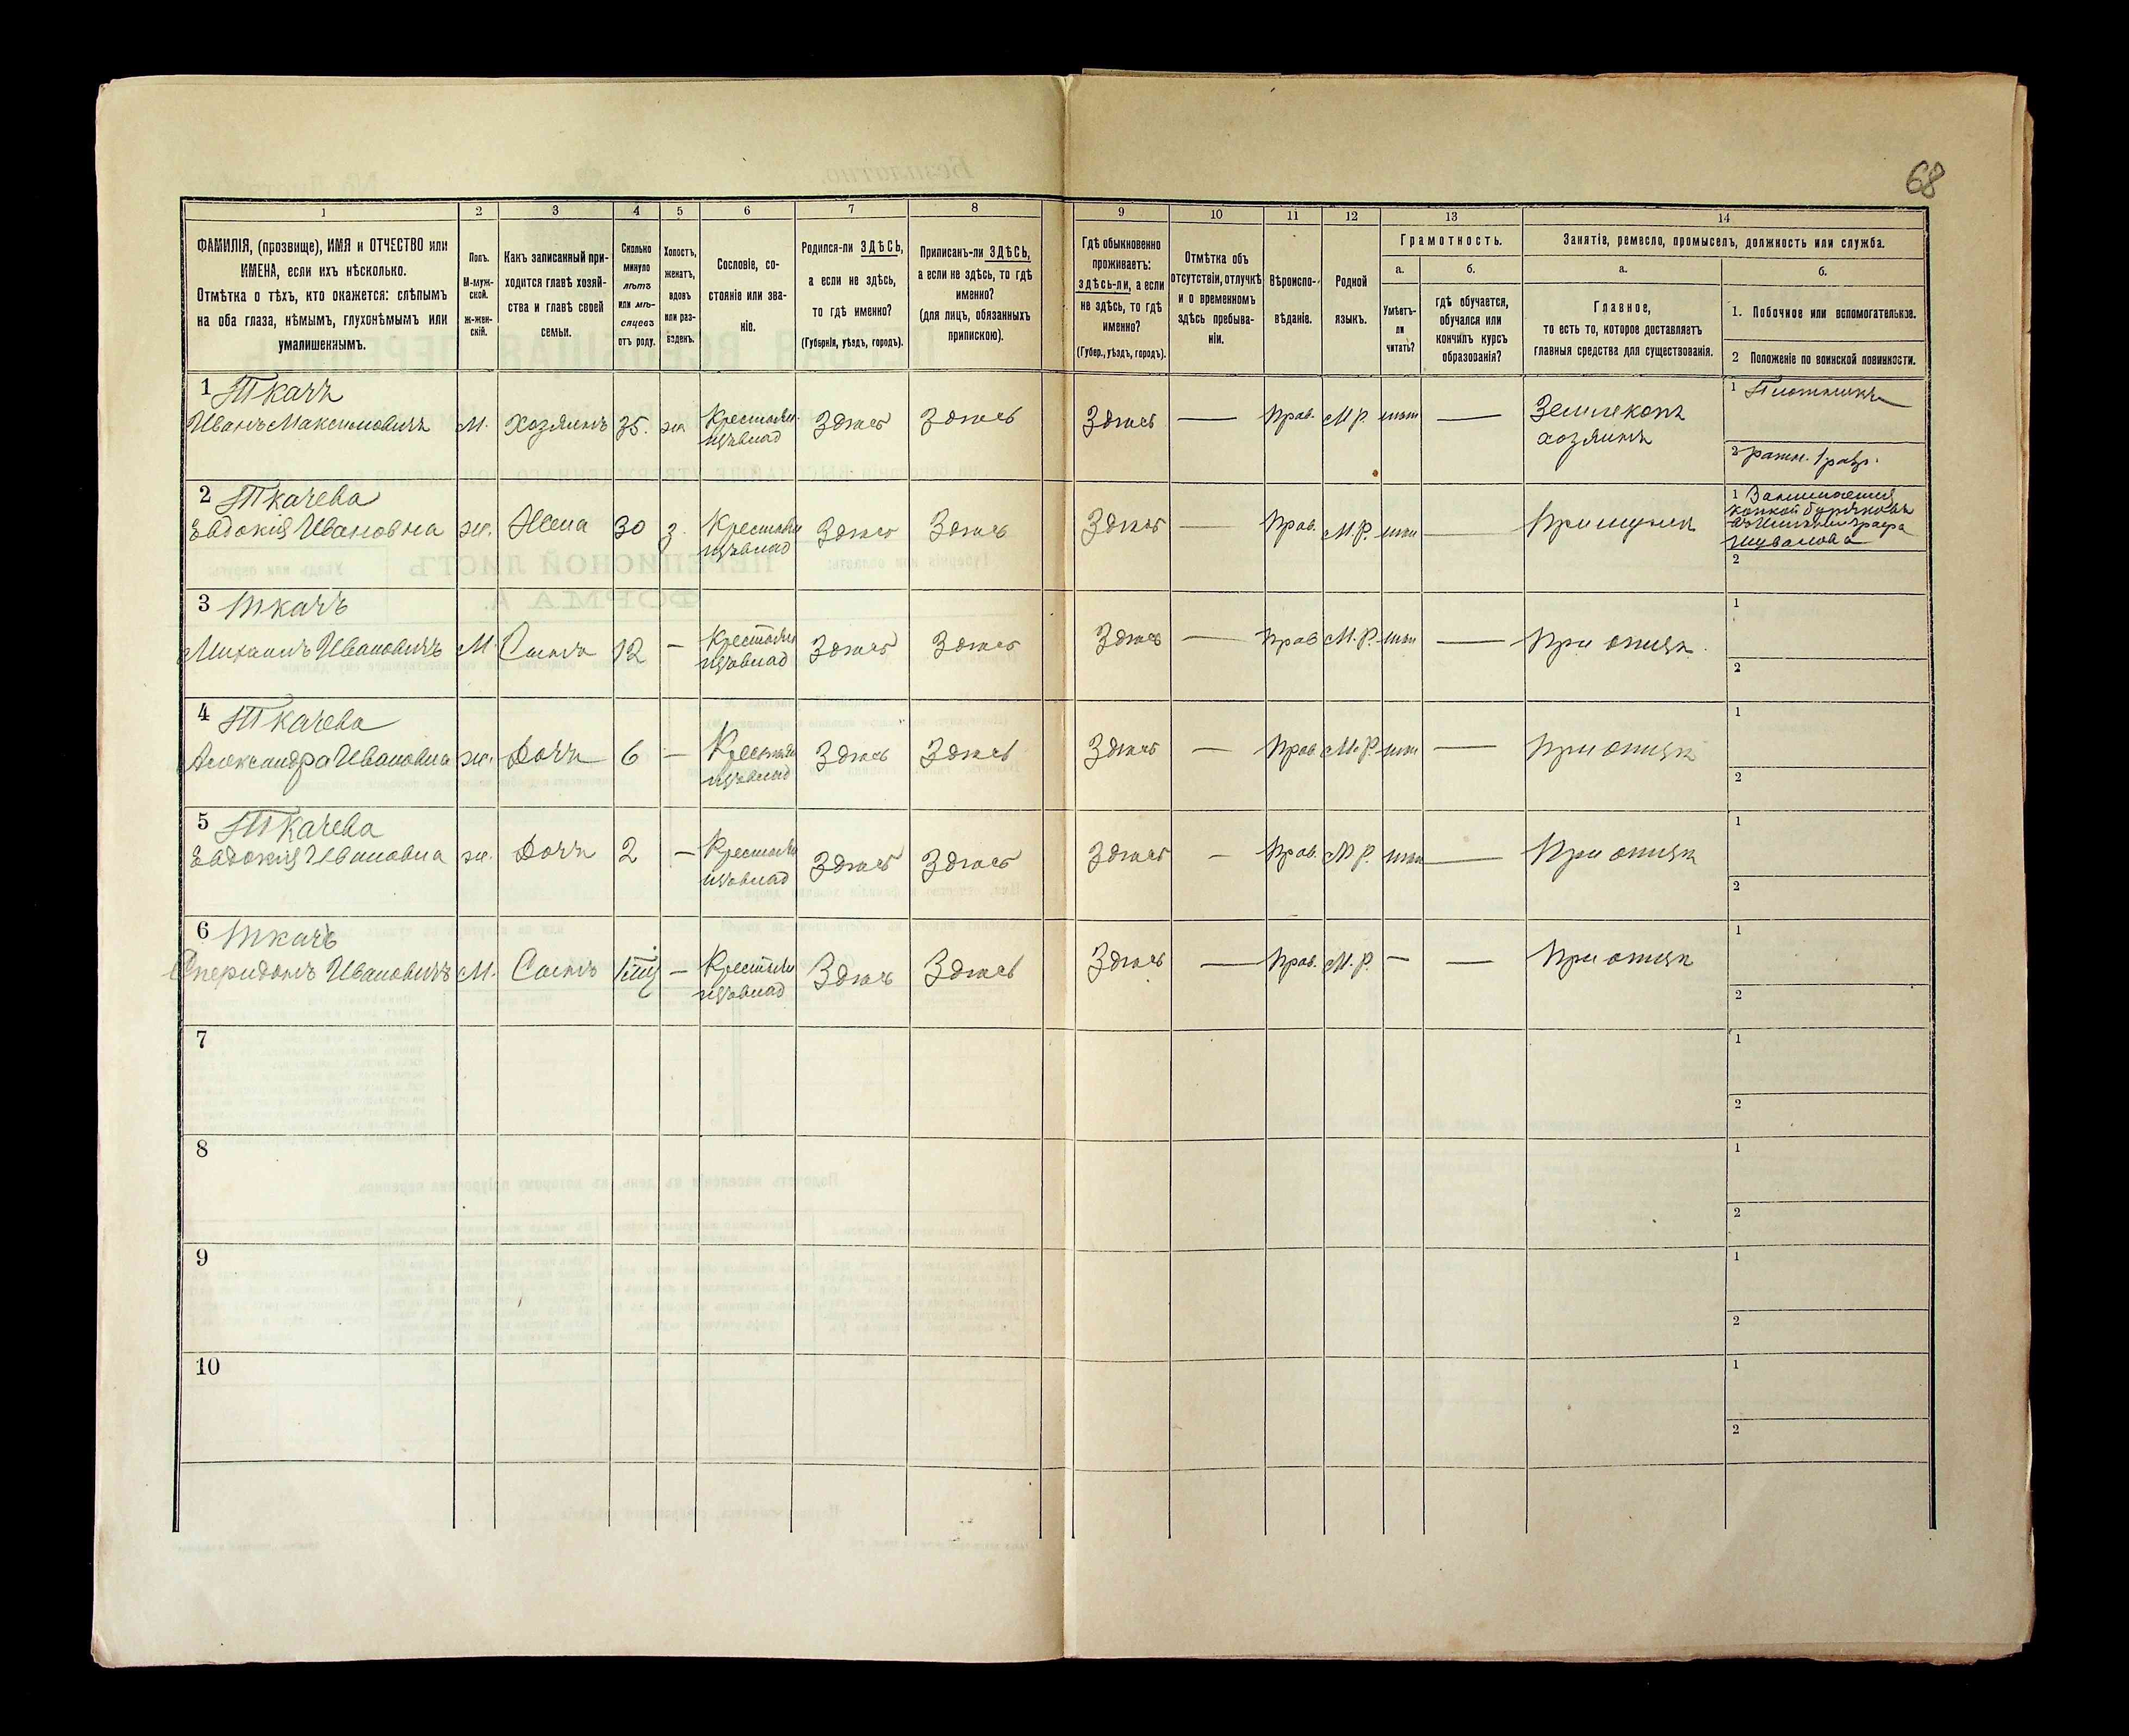 68
1 2 3 4 5 6 7 8 9 10 11 12 13 14
ФАМИЛІЯ, (прозвище), ИМЯ и ОТЧЕСТВО или
ИМЕНА, если ихъ нѣсколько.
Отмѣтка о тѣхъ, кто окажется: слѣпымъ
на оба глаза, нѣмымъ, глухонѣмымъ или
умалишеннымъ.
Полъ.
М-муж-
ской.
Ж-жен-
скій.
Какъ записанный при-
ходится главѣ хозяй-
ства и главѣ своей
семьи.
Сколько
минуло
лѣтъ
или мѣ-
сяцевъ
отъ роду.
Холостъ,
женатъ,
вдовъ
или раз-
веденъ.
Сословіе, со-
стояніе или зва-
ніе.
Родился-ли ЗДѢСЬ,
а если не здѣсь,
то гдѣ именно?
(Губернія, уѣздъ, городъ).
Приписанъ-ли ЗДѢСЬ,
а если не здѣсь, то гдѣ
именно?
(для лицъ, обязанныхъ
припискою).
Гдѣ обыкновенно
проживаетъ:
здѣсь-ли, а если
не здѣсь, то гдѣ
именно?
(Губер., уѣздъ, городъ).
Отмѣтка объ
отсутствіи, отлучкѣ
и о временномъ
здѣсь пребыва-
ніи.
Вѣроиспо-
вѣданіе.
Родной
языкъ.
Грамотность.
а.
Умѣетъ-
ли
читать?
б.
гдѣ обучается,
обучался или
кончилъ курсъ
образованія?
Занятіе, ремесло, промыселъ, должность или служба.
а.
Главное,
то есть то, которое доставляетъ
главныя средства для существованія.
б.
1. Побочное или вспомогательное.
2 Положеніе по воинской повинности.
1 Ткачъ
Иванъ Максимовичъ М. Хозяинъ 35. ж. Крестьян. Здѣсь Здѣсь Здѣсь — Прав. М.Р. нѣт — 1 Плотникъ
хозяинъ
2 ратн. 1 разр.
2 Ткачева
Евдокія Ивановна ж. Жена 30 з. Крестьян Здѣсь Здѣсь Здѣсь — Прав. М.Р. нѣт — При мужѣ 1 Занимается
копкой буряковъ
графа
Шувалова
2
3 Ткачъ
Михаилъ Ивановичъ М. Сынъ 12 — Крестьян Здѣсь Здѣсь Здѣсь — Прав М.Р. нѣт — При отцѣ 1
2
4 Ткачева
Александра Ивановна ж. Дочь 6 — Крестьян Здѣсь Здѣсь Здѣсь — Прав М.Р. нѣт — При отцѣ 1
2
5 Ткачева
Евдокія Ивановна ж. Дочь 2 — Крестьян Здѣсь Здѣсь Здѣсь — Прав. М.Р. нѣт — При отцѣ 1
2
6 Ткачъ
Спиридонъ Ивановичъ М. Сынъ — Крестьян Здѣсь Здѣсь Здѣсь — Прав. М.Р. — — При отцѣ 1
2
7 1
2
8 1
2
9 1
2
10 1
2